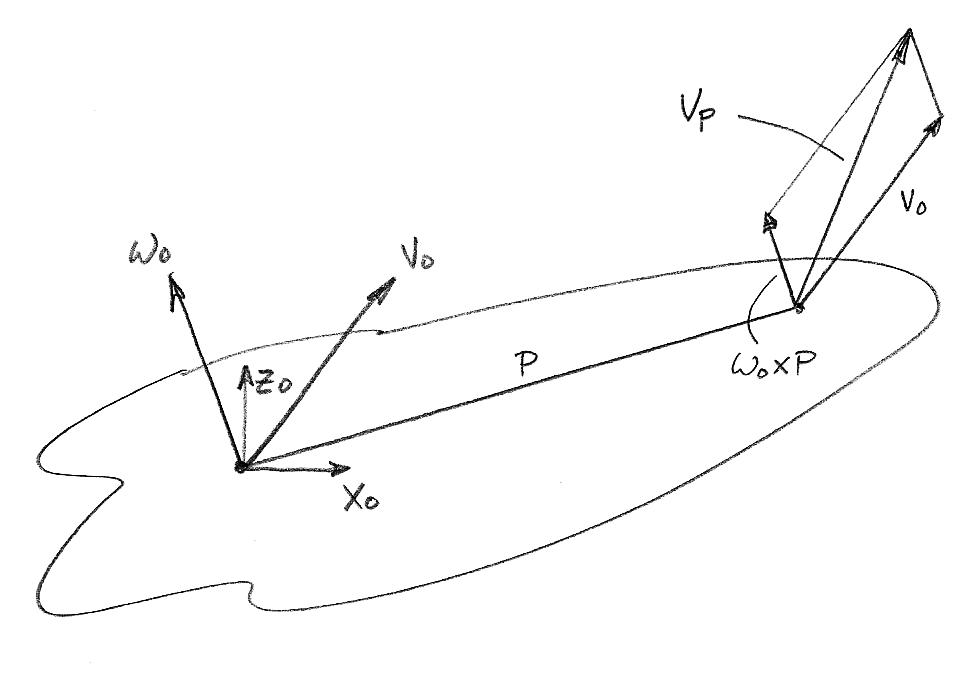 Vp
V₀
ω₀
V₀
Z₀
P
ω₀×P
X₀